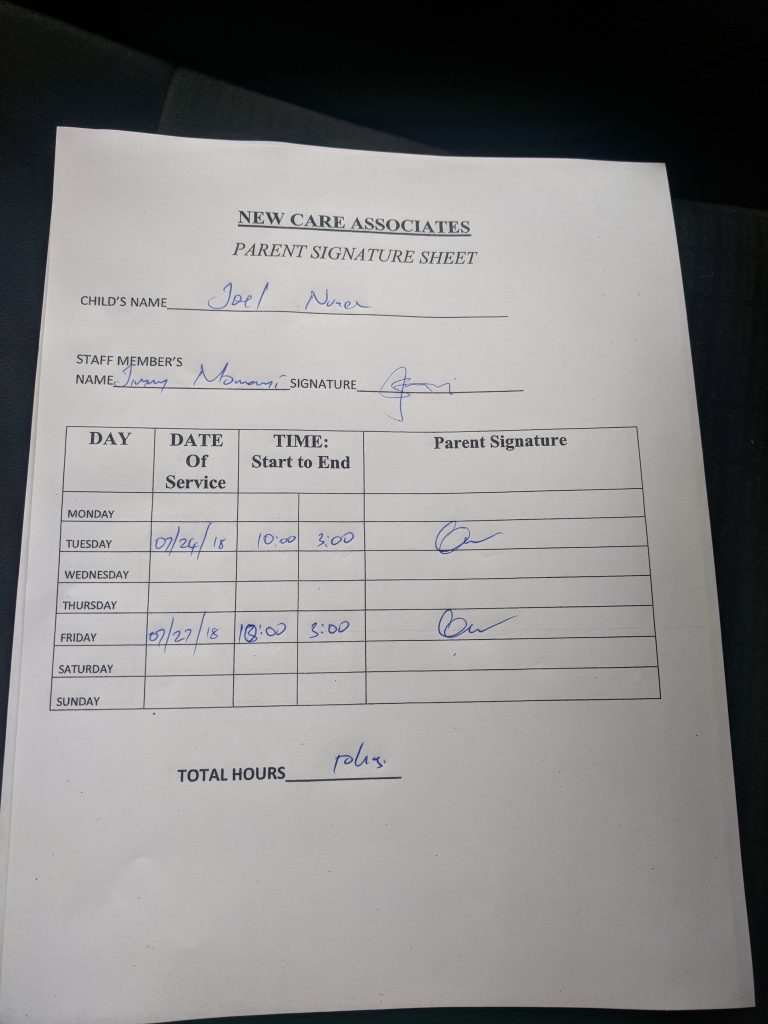 NEW CARE ASSOCIATES
PARENT SIGNATURE SHEET
CHILD'S NAME Joel
STAFF MEMBER'S
NAME SIGNATURE
DAY DATE Of Service TIME: Start to End Parent Signature
MONDAY
TUESDAY 07/24/18 10:00 3:00
WEDNESDAY
THURSDAY
FRIDAY 07/27/18 10:00 3:00
SATURDAY
SUNDAY
TOTAL HOURS 10hrs.